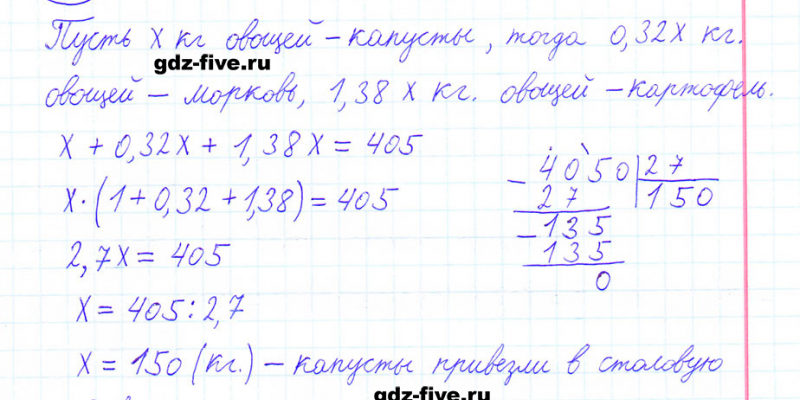 Пусть x кг овощей – капусты, тогда 0,32x кг.
gdz-five.ru
овощей – морковь, 1,38 x кг. овощей – картофель.
x + 0,32x + 1,38x = 405
x·(1 + 0,32 + 1,38) = 405
2,7x = 405
x = 405 : 2,7
x = 150 (кг.) – капусты привезли в столовую
– 4050 | 27
27 | 150
– 135
135
0
gdz-five.ru